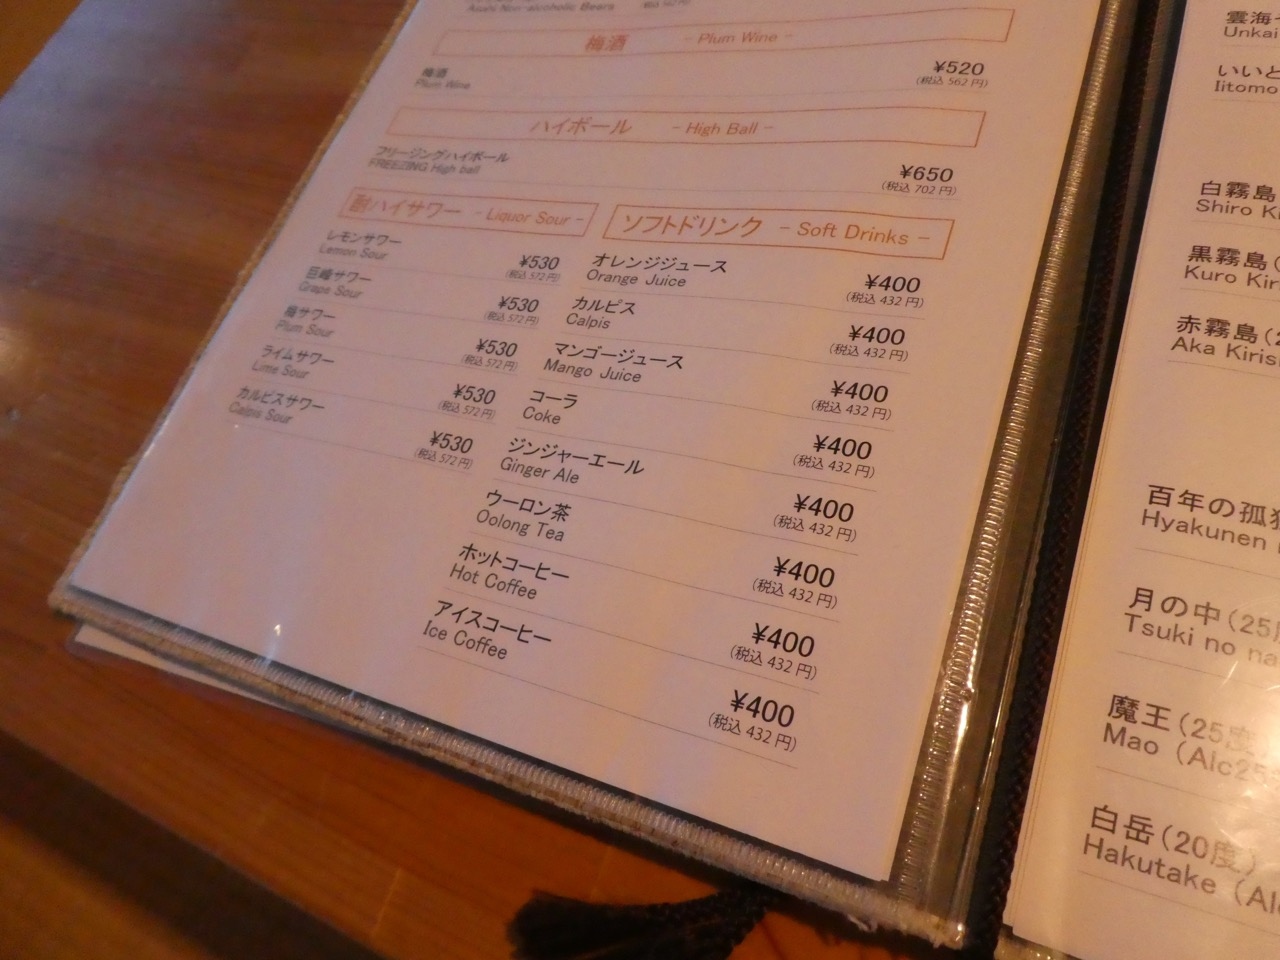 Asahi Non-alcoholic Bears
梅酒 - Plum Wine -
梅酒
Plum Wine
¥520
(税込 562 円)
ハイボール - High Ball -
フリージングハイボール
FREEZING High ball
¥650
(税込 702 円)
酎ハイサワー - Liquor Sour -
レモンサワー
Lemon Sour
¥530
(税込 572 円)
巨峰サワー
Grape Sour
¥530
(税込 572 円)
梅サワー
Plum Sour
¥530
(税込 572 円)
ライムサワー
Lime Sour
¥530
(税込 572 円)
カルピスサワー
Calpis Sour
¥530
(税込 572 円)
ソフトドリンク - Soft Drinks -
オレンジジュース
Orange Juice
¥400
(税込 432 円)
カルピス
Calpis
¥400
(税込 432 円)
マンゴージュース
Mango Juice
¥400
(税込 432 円)
コーラ
Coke
¥400
(税込 432 円)
ジンジャーエール
Ginger Ale
¥400
(税込 432 円)
ウーロン茶
Oolong Tea
¥400
(税込 432 円)
ホットコーヒー
Hot Coffee
¥400
(税込 432 円)
アイスコーヒー
Ice Coffee
¥400
(税込 432 円)
雲海
Unkai
いいと
Iitomo
白霧島
Shiro K
黒霧島(
Kuro Kir
赤霧島(2
Aka Kiris
百年の孤
Hyakunen
月の中(25
Tsuki no na
魔王(25度
Mao (Alc25
白岳(20度)
Hakutake (Al